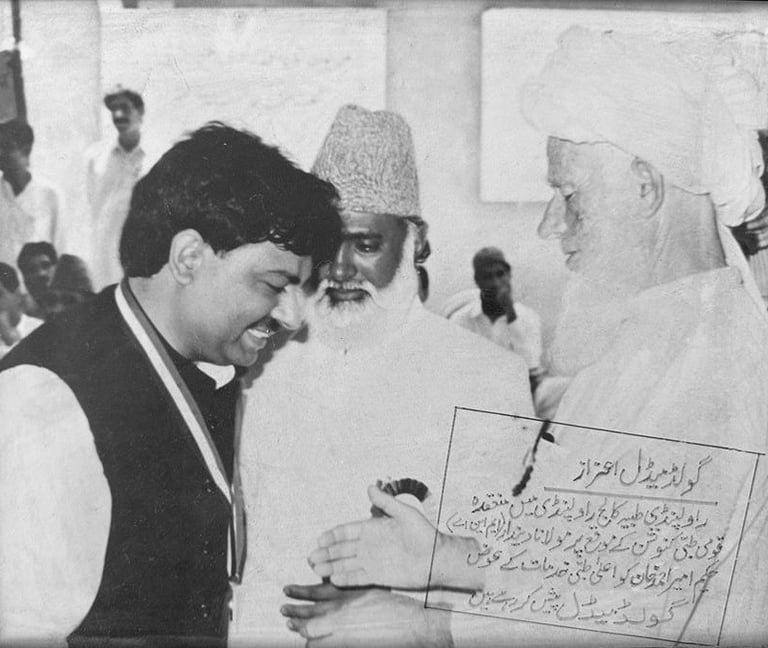 گولڈ میڈل اعزاز
راولپنڈی طبیہ کالج راولپنڈی میں منعقدہ
قومی طبی کنونشن کے موقع پر مولانا دیندار (ایم این اے)
حکیم امیر احمد خان کو اعلیٰ طبی خدمات کے عوض
گولڈ میڈل پیش کر رہے ہیں